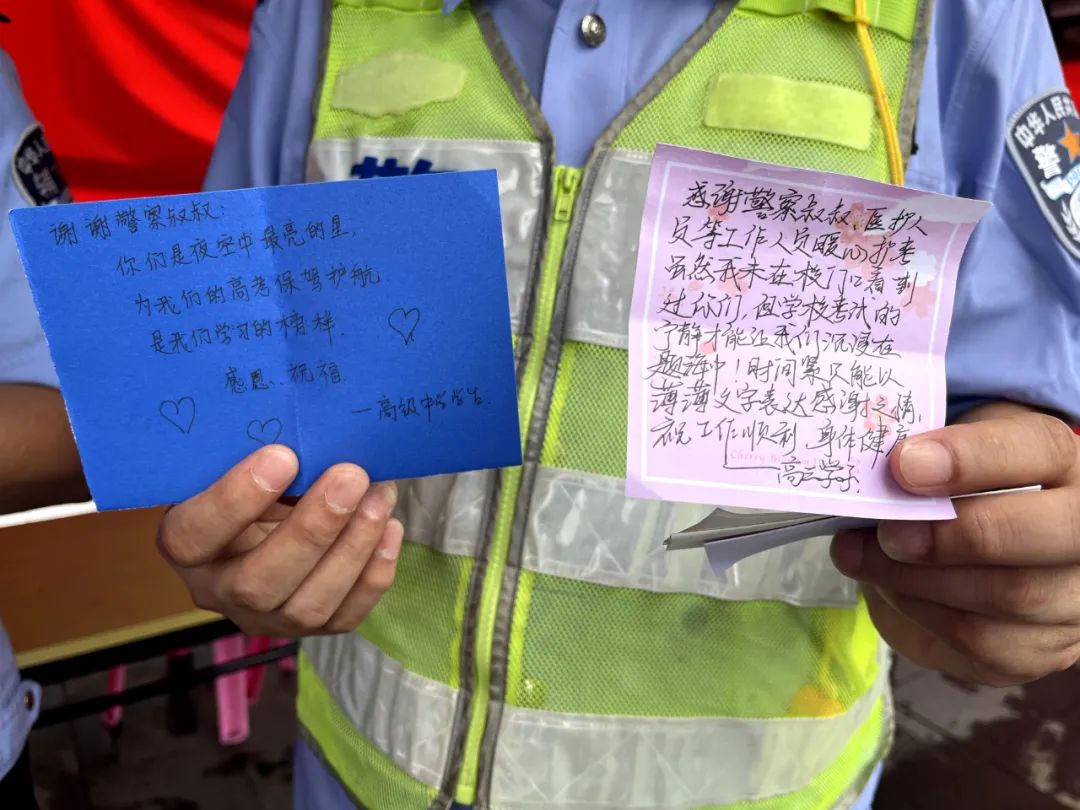 谢谢警察叔叔:
你们是夜空中最亮的星,
为我们的高考保驾护航
是我们学习的榜样.
感恩、祝福.
—高级中学学生.
感谢警察叔叔、医护人
员等工作人员暖心护考
虽然我未在校门口看到
过你们,但学校考试的
宁静才能让我们沉浸在
题海中!时间紧只能以
薄薄文字表达感谢之情,
祝工作顺利,身体健康
Cherry
——高三学子.
中华人民共
警